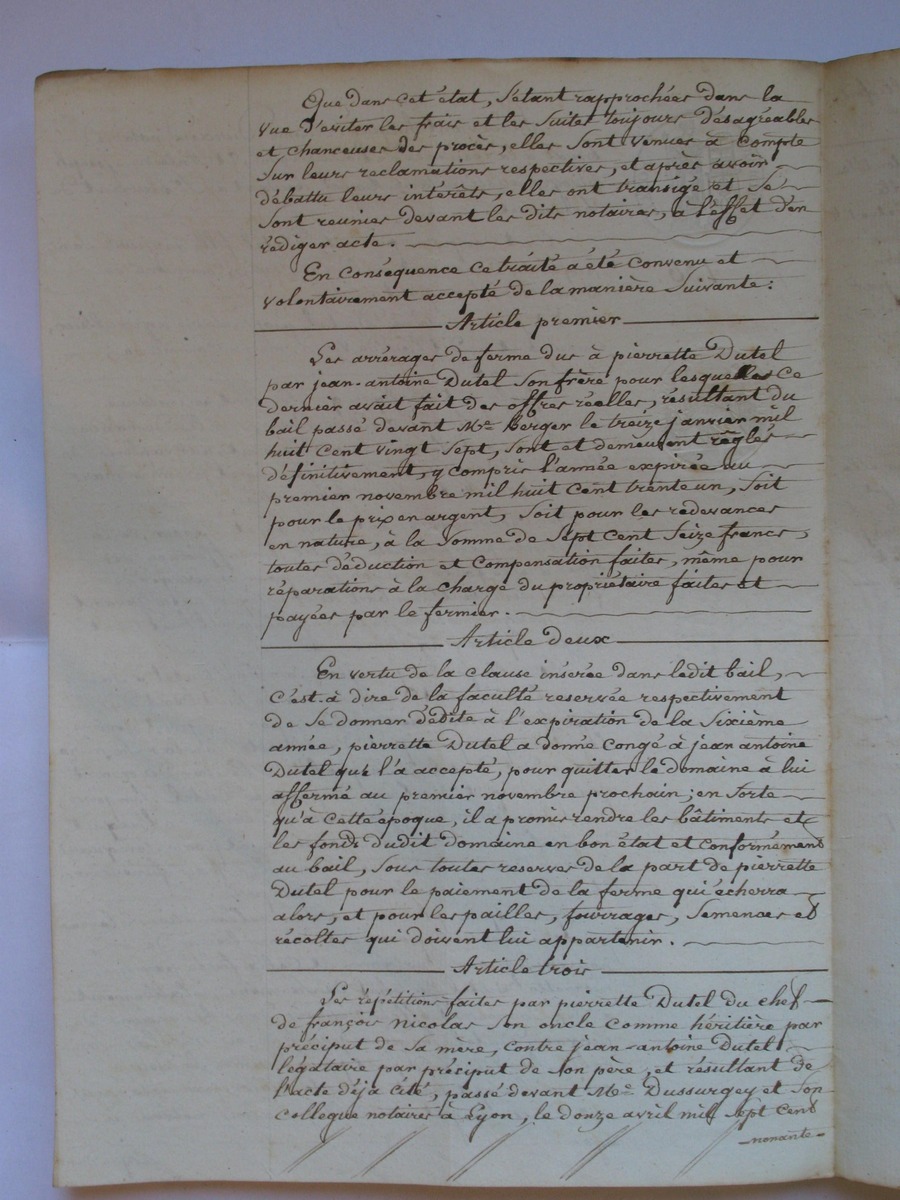 Que dans cet état, s'étant rapprochées dans la
vue d'eviter les frais et les suites toujours désagréables
et chanceuses des procès, elles sont venues à compte
sur leurs reclamations respectives, et après avoir
débattu leurs intérêts, elles ont transigé et se
sont reunies devant les dits notaires, à l'effet d'en
rédiger acte.
En conséquence ce traité a été convenu et
volontairement accepté de la manière suivante:
Article premier
Les arrérages de ferme dus à pierrette Dutel
par jean-antoine Dutel son frère pour lesquelles ce
dernier avait fait des offres réelles, résultant du
bail passé devant Me Berger le treize janvier mil
huit cent vingt sept, sont et demeurent règlés
définitivement, y compris l'année expirée au
premier novembre mil huit cent trente un, soit
pour le prix en argent, soit pour les redevances
en nature, à la somme de sept cent seize francs,
toutes déduction et compensation faites, même pour
réparations à la charge du propriétaire faites et
payées par le fermier.
Article deux
En vertu de la clause insérée dans ledit bail,
c'est à dire de la faculté reservée respectivement
de se donner dédite à l'expiration de la sixième
année, pierrette Dutel a donné congé à jean antoine
Dutel qui l'a accepté, pour quitter le domaine à lui
affermé au premier novembre prochain; en sorte
qu'à cette époque, il a promis rendre les bâtiments et
les fonds dudit domaine en bon état et conformément
au bail, sous toutes reserves de la part de pierrette
Dutel pour le paiement de la ferme qui écherra
alors, et pour les pailles, fourrages, semences et
récoltes qui doivent lui appartenir.
Article trois
Les répétitions faites par pierrette Dutel du chef
de françois nicolas son oncle comme héritière par
préciput de sa mère, contre jean-antoine Dutel
légataire par préciput de son père, et résultant de
l'acte déjà cité, passé devant Me Dussurgey et son
collegue notaires à Lyon, le douze avril mil sept cent
-nonante-